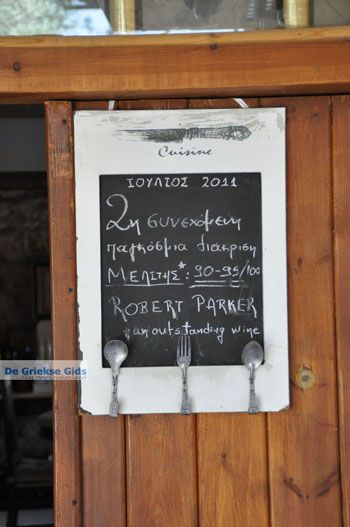 Cuisine
ΙΟΥΛΙΟΣ 2011
2η συνεχόμενη
παγκόσμια διάκριση
ΜΕΛΙΤΗΣ* : 90-95/100
ROBERT PARKER
*an outstanding wine
De Griekse Gids